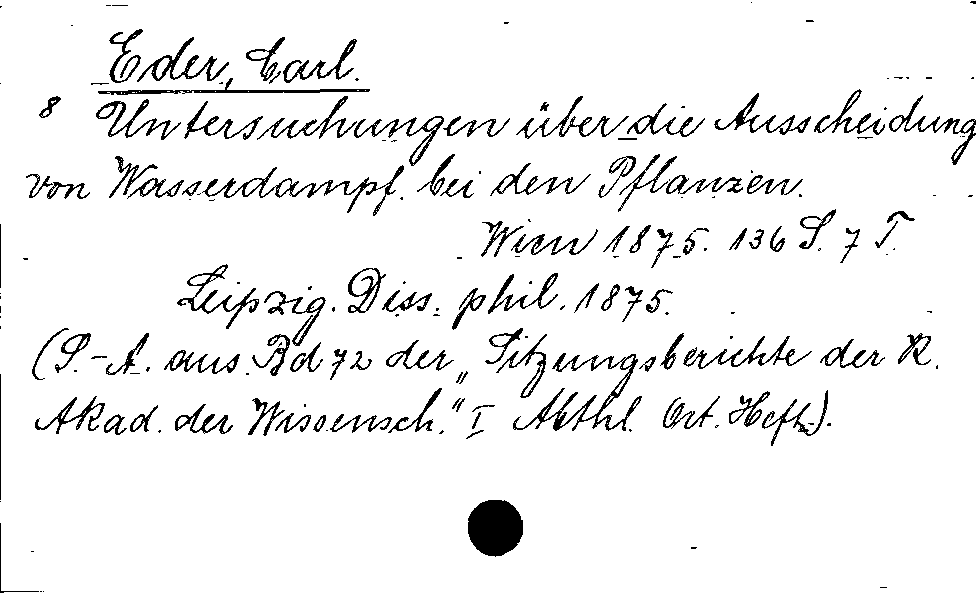 Eder, Carl.
8 Untersuchungen über die Ausscheidung
von Wasserdampf bei den Pflanzen.
Wien 1875. 136 S. 7 T.
Leipzig. Diss. phil. 1875.
(S.-A. aus Bd 72 der „Sitzungsberichte der K.
Akad. der Wissensch." I Abthl. Oct. Heft).